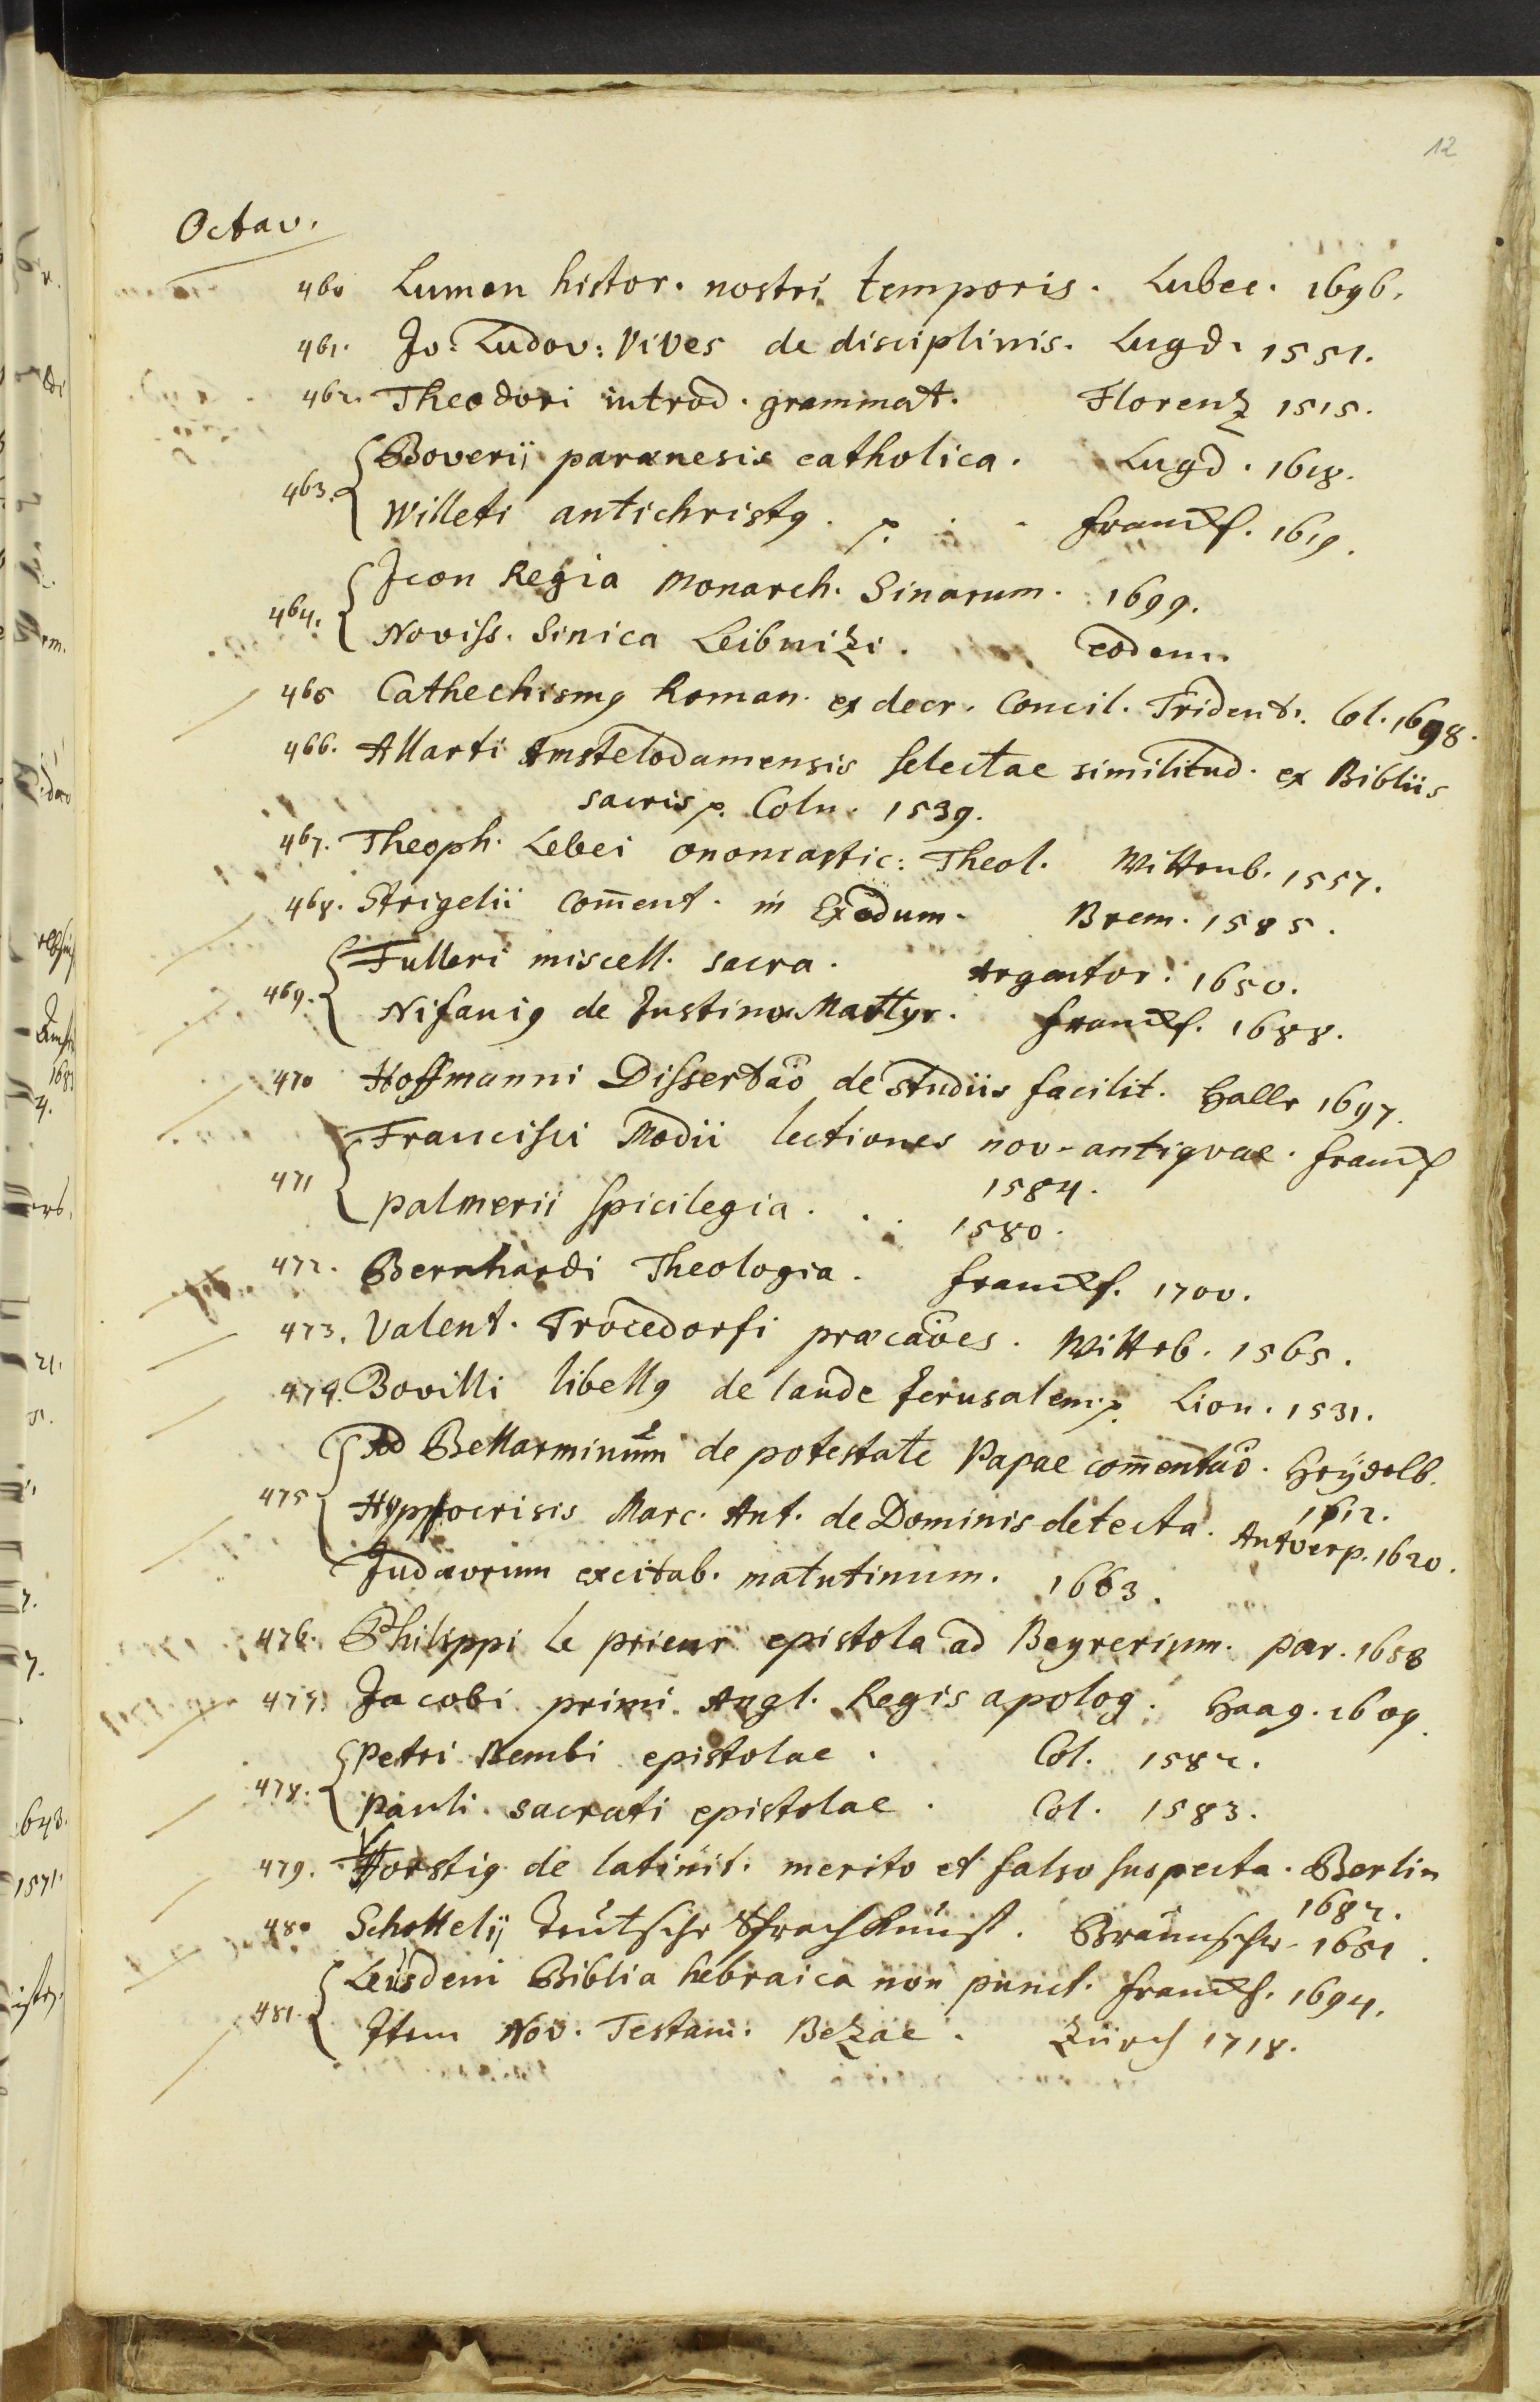 12
Octav.
460 Lumen histor. nostri temporis. Lubec. 1696.
461. Jo: Ludov: Vives de disciplinis. Lugd. 1551.
462. Theodori introd. grammat. Florenz 1515.
463. Boverij paraenesis catholica. Lugd. 1618.
Willeti antichristꝰ. Franckf. 1619.
464. Icon Regia Monarch. Sinarum. 1699.
Noviss. Sinica Leibnizi. eodem.
465 Cathechismꝰ Roman. ex decr. Concil. Trident. Col. 1698.
466. Allarti Amstelodamensis selectae similitud. ex Bibliis
sacris p. Coln. 1539.
467. Theoph. Lebei onomastic: Theol. Wittenb. 1557.
468. Strigelii Com̄ent. in Exodum. Brem. 1585.
469. Fulleri miscell. sacra. Argentor. 1650.
Nifaniꝰ de Justino Martyr. franckf. 1688.
470 Hoffmanni Dissertaõ de studiis facilit. Halle 1697.
471 Francisci Modii lectiones nov-antiqvae. franckf
1584.
Palmerii spicilegia. 1580.
472. Bernhardi Theologia. franckf. 1700.
473. Valent. Trocedorfi praecaões. Witteb. 1565.
474. Bovilli libellꝰ de laude Jerusalem p. Lion. 1531.
475 Ad Bellarminum de potestate Papae com̄entaõ. Heÿdelb.
1612.
Hyppocrisis Marc. Ant. de Dominis detecta. Antverp. 1620.
Judaeorum excitab. matutinum. 1663.
476. Philippi le prieur epistola ad Beyrerium. Par. 1658
477. Jacobi primi Angl. Regis apolog. Haag. 1609.
478. Petri Bembi epistolae. Col. 1582.
Pauli sacrati epistolae. Col. 1583.
479. Vorstiꝰ de latinit. merito et falso suspecta. Berlin
1682.
480 Schottelij Teutsche Sprachkunst. Braunschw. 1651.
481. Leusdeni Biblia hebraica non punct. franckf. 1694.
Item Nov. Testam. Bezae. Zürch 1718.